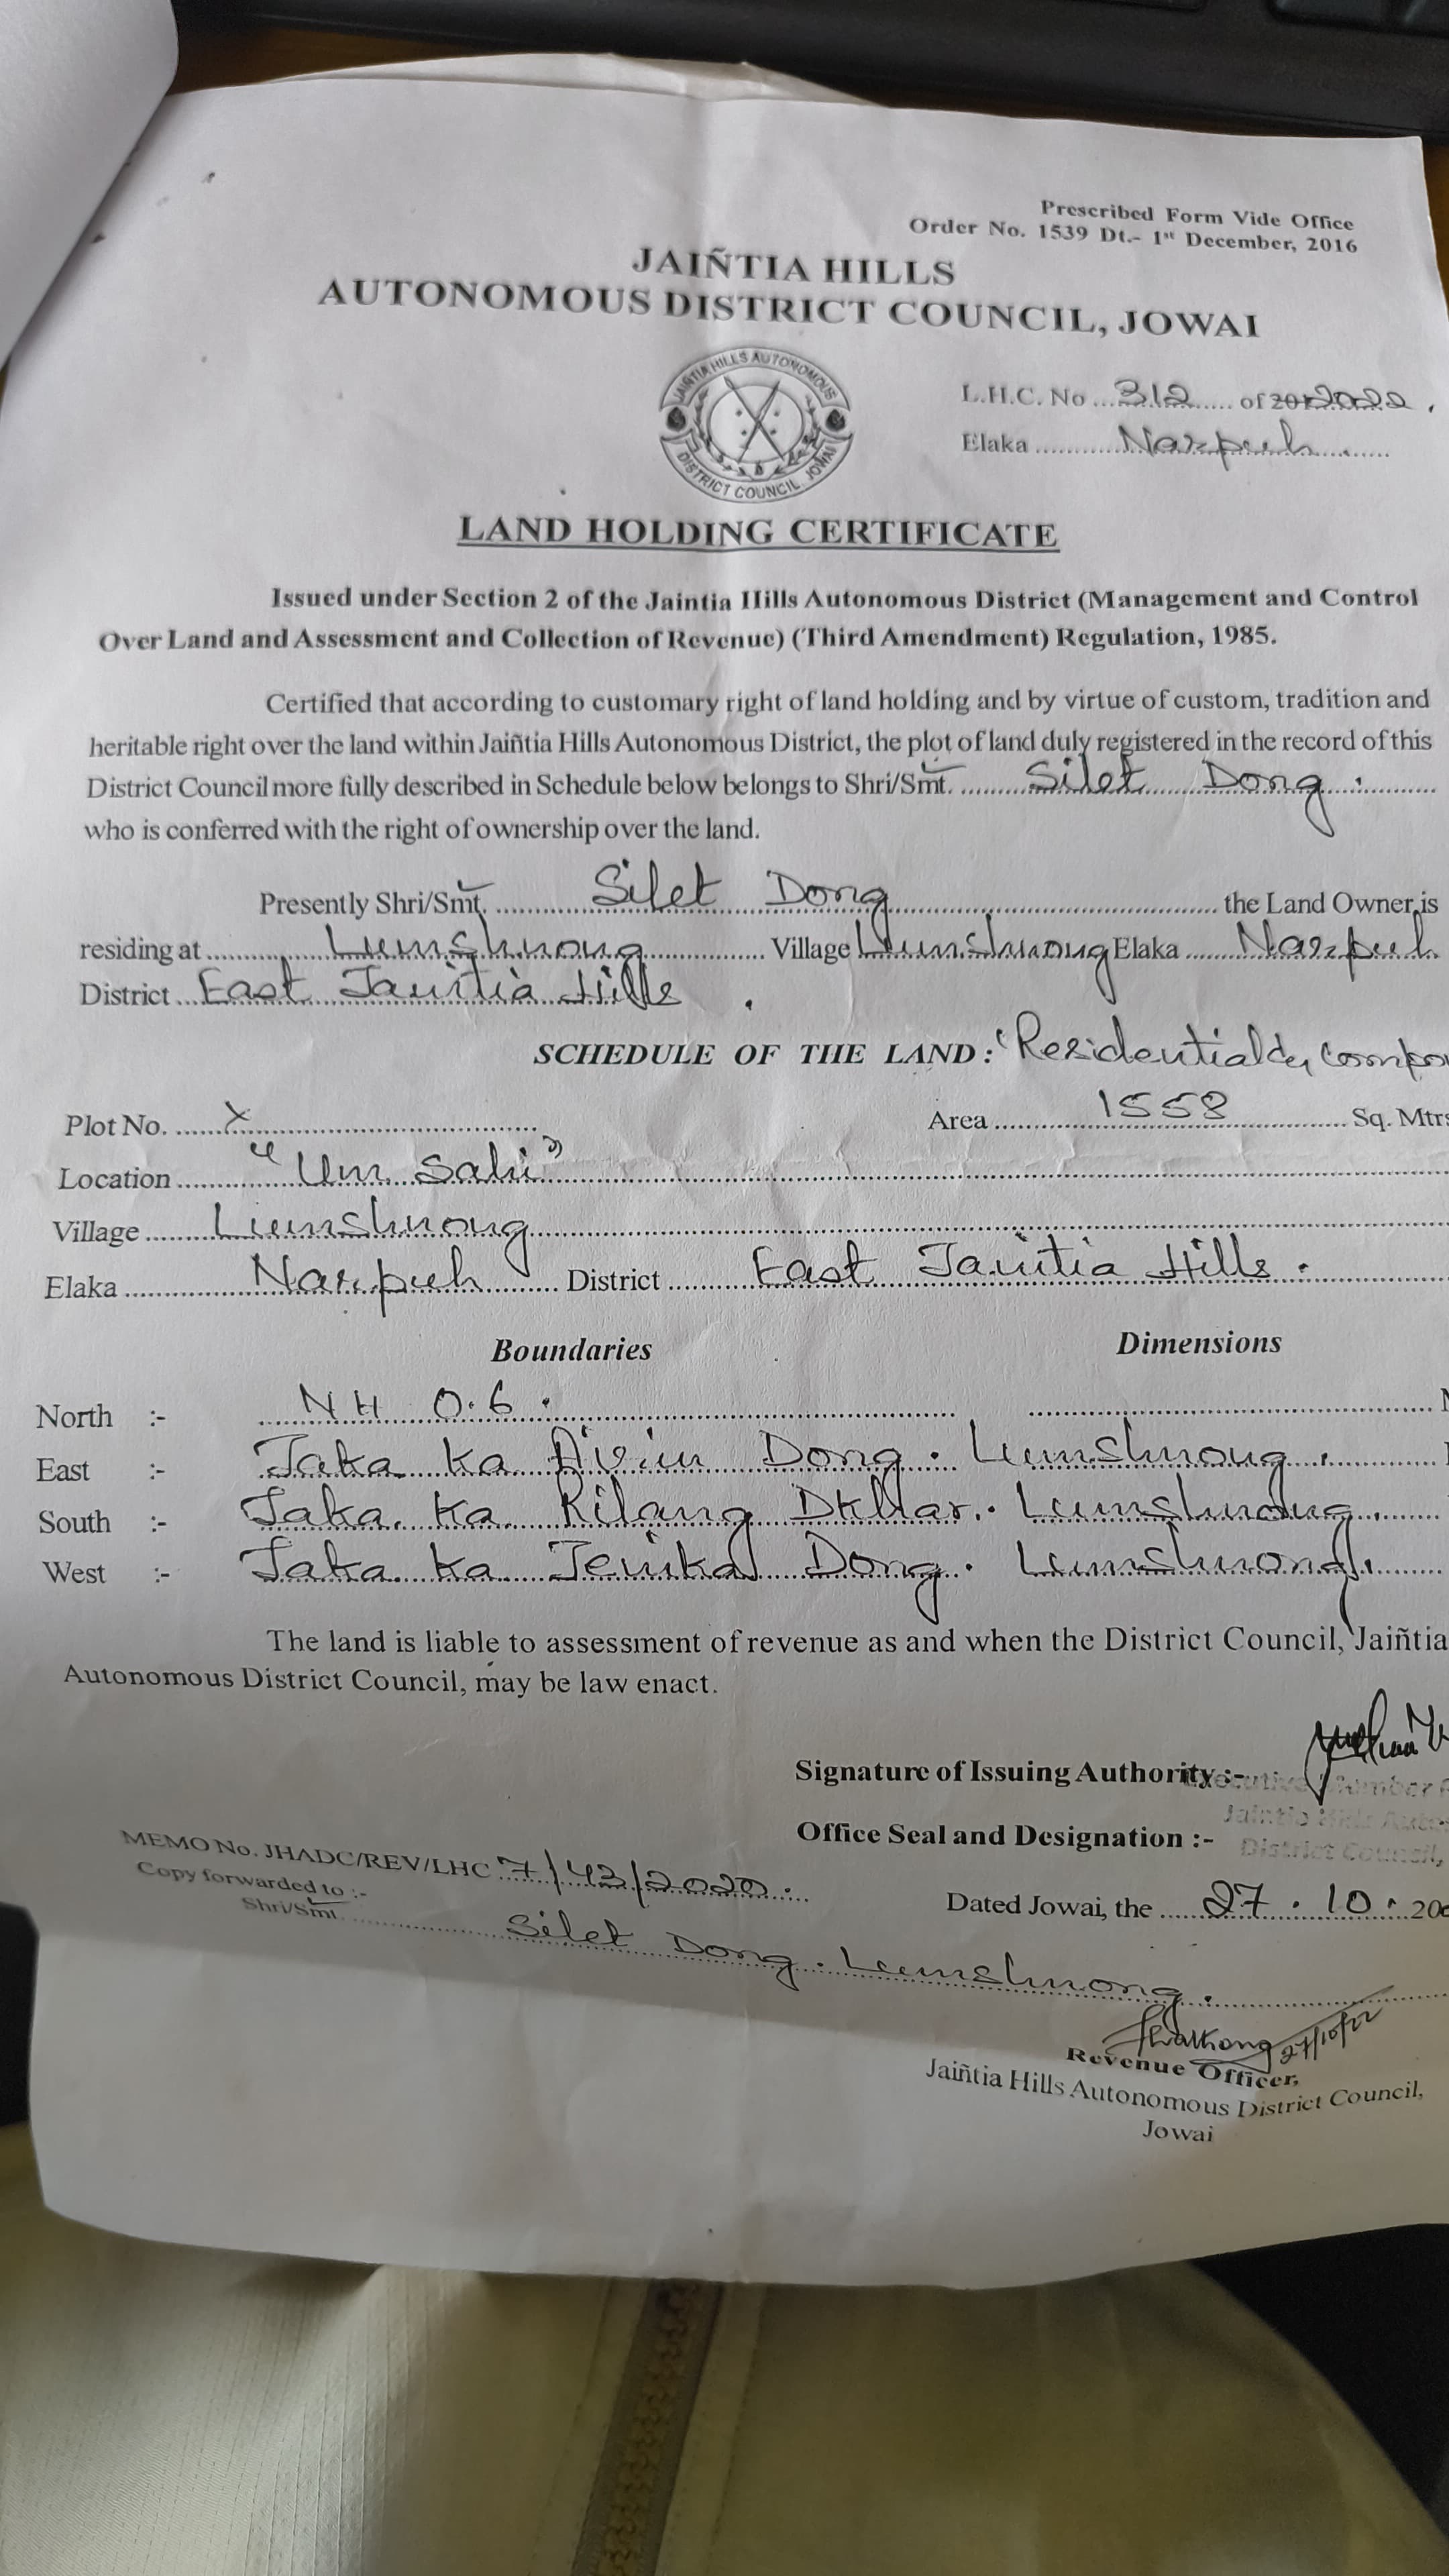 Prescribed Form Vide Office
Order No. 1539 Dt.- 1st December, 2016
JAIÑTIA HILLS
AUTONOMOUS DISTRICT COUNCIL, JOWAI
JAIÑTIA HILLS AUTONOMOUS
DISTRICT COUNCIL, JOWAI
L.H.C. No ... 312 ...... of 2022.
Elaka .......... Narpuh ..........
LAND HOLDING CERTIFICATE
Issued under Section 2 of the Jaintia Hills Autonomous District (Management and Control
Over Land and Assessment and Collection of Revenue) (Third Amendment) Regulation, 1985.
Certified that according to customary right of land holding and by virtue of custom, tradition and
heritable right over the land within Jaiñtia Hills Autonomous District, the plot of land duly registered in the record of this
District Council more fully described in Schedule below belongs to Shri/Smt. .......... Silet Dong ..........
who is conferred with the right of ownership over the land.
Presently Shri/Smt. .......... Silet Dong .......... the Land Owner is
residing at .......... Lumshnong .......... Village Lumshnong Elaka ...... Narpuh
District ... East Jaiñtia Hills .
SCHEDULE OF THE LAND : "Residential &
Plot No. ...... X .......... Area .......... 1558 .......... Sq. Mtrs
Location .......... "Um Sahi" ..........
Village ...... Lumshnong ..........
Elaka .......... Narpuh .......... District ...... East Jaiñtia Hills .
Boundaries Dimensions
North :- NH 0.6 .
East :- Jaka ka Dong. Lumshnong.
South :- Jaka ka Rilang Dkhar. Lumshnong.
West :- Jaka ka Dong. Lumshnong.
The land is liable to assessment of revenue as and when the District Council, Jaiñtia
Autonomous District Council, may be law enact.
Signature of Issuing Authority :-
Office Seal and Designation :-
District Council,
MEMO No. JHADC/REV/LHC 7/43/2020.
Dated Jowai, the ...... 27 . 10 .
Copy forwarded to :-
Shri/Smt .......... Silet Dong. Lumshnong.
27/10/22
Revenue Officer,
Jaiñtia Hills Autonomous District Council,
Jowai